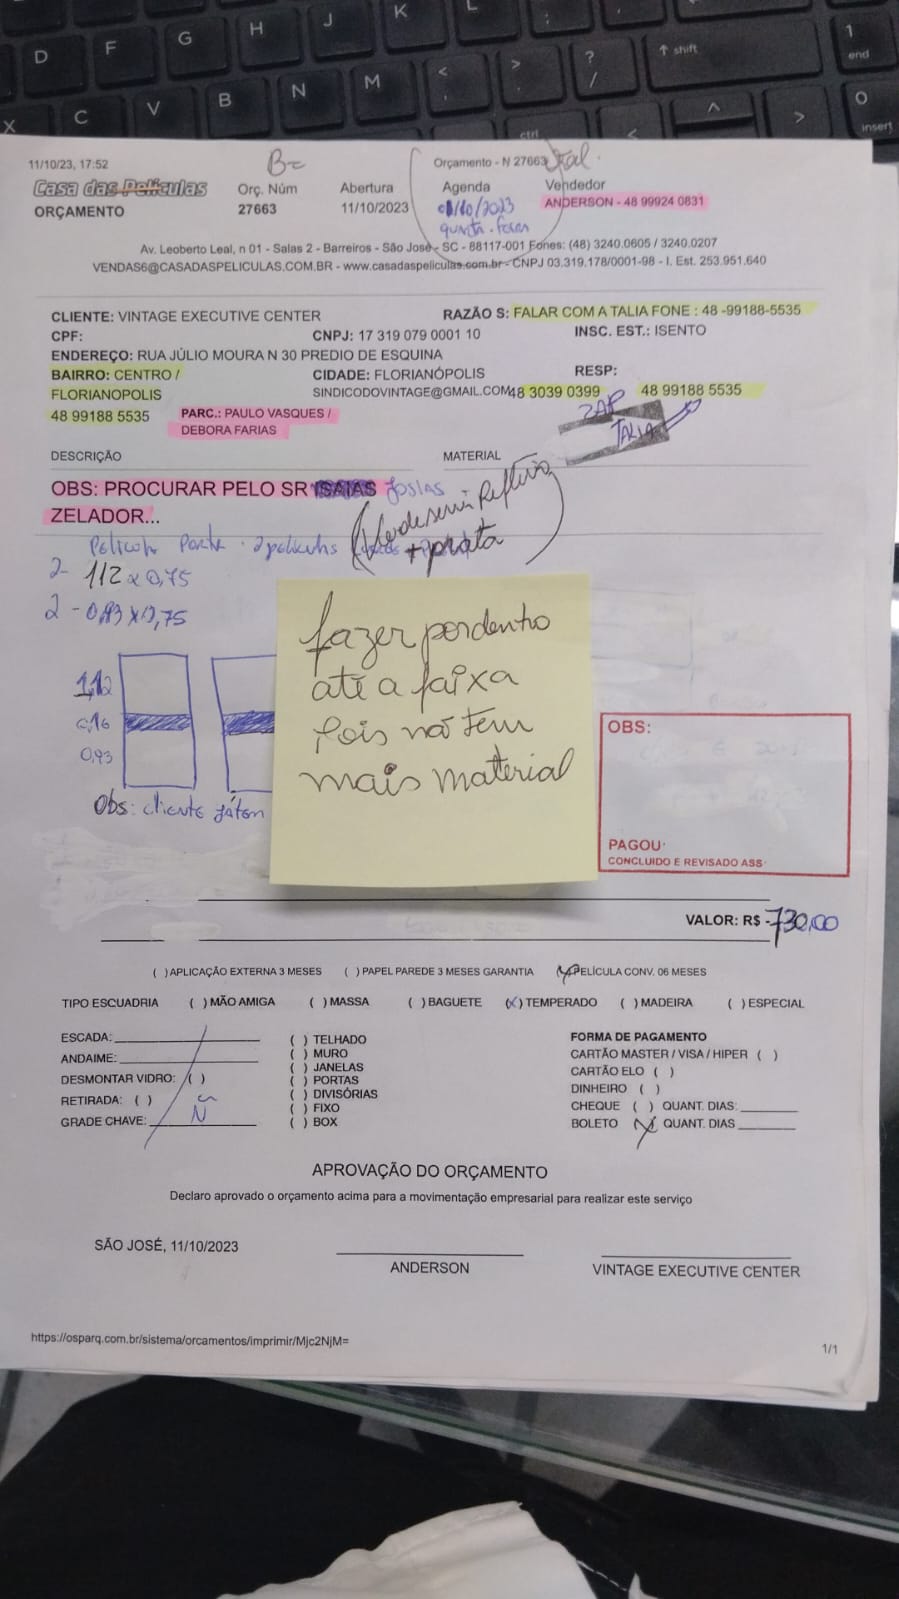 D F G H J K
X C V B N M < > ? / ↑ shift 1 end
ctrl < ^ > 0 insert
11/10/23, 17:52 Orçamento - N 27663
Casa das Películas Orç. Núm Abertura Agenda Vendedor
ORÇAMENTO 27663 11/10/2023 /10/2023 ANDERSON - 48 99924 0831
quinta-feira
Av. Leoberto Leal, n 01 - Salas 2 - Barreiros - São José - SC - 88117-001 Fones: (48) 3240.0605 / 3240.0207
VENDAS6@CASADASPELICULAS.COM.BR - www.casadaspeliculas.com.br - CNPJ 03.319.178/0001-98 - I. Est. 253.951.640
CLIENTE: VINTAGE EXECUTIVE CENTER RAZÃO S: FALAR COM A TALIA FONE : 48 -99188-5535
CPF: CNPJ: 17 319 079 0001 10 INSC. EST.: ISENTO
ENDEREÇO: RUA JÚLIO MOURA N 30 PREDIO DE ESQUINA
BAIRRO: CENTRO / CIDADE: FLORIANÓPOLIS RESP:
FLORIANOPOLIS SINDICODOVINTAGE@GMAIL.COM 48 3039 0399 48 99188 5535
48 99188 5535 PARC.: PAULO VASQUES / ZAP
DEBORA FARIAS TALIA
DESCRIÇÃO MATERIAL
OBS: PROCURAR PELO SR ISAIAS Josias
ZELADOR...
(Verde semi Refletivo
+ prata)
Película Porta - 2 películas
2- 112 x 0,75
2 - 0,93 x 0,75
1,12
0,16
0,93
Obs: cliente já tem
fazer por dentro
até a faixa
pois não tem
mais material
OBS:
PAGOU:
CONCLUIDO E REVISADO ASS:
VALOR: R$ -730,00
( ) APLICAÇÃO EXTERNA 3 MESES ( ) PAPEL PAREDE 3 MESES GARANTIA (X) PELÍCULA CONV. 06 MESES
TIPO ESCUADRIA ( ) MÃO AMIGA ( ) MASSA ( ) BAGUETE (X) TEMPERADO ( ) MADEIRA ( ) ESPECIAL
ESCADA: ( ) TELHADO FORMA DE PAGAMENTO
ANDAIME: ( ) MURO CARTÃO MASTER / VISA / HIPER ( )
DESMONTAR VIDRO: ( ) ( ) JANELAS CARTÃO ELO ( )
RETIRADA: ( ) ( ) PORTAS DINHEIRO ( )
GRADE CHAVE: Ñ ( ) DIVISÓRIAS CHEQUE ( ) QUANT. DIAS:
( ) FIXO BOLETO (X) QUANT. DIAS
( ) BOX
APROVAÇÃO DO ORÇAMENTO
Declaro aprovado o orçamento acima para a movimentação empresarial para realizar este serviço
SÃO JOSÉ, 11/10/2023
ANDERSON VINTAGE EXECUTIVE CENTER
https://osparq.com.br/sistema/orcamentos/imprimir/Mjc2NjM=
1/1